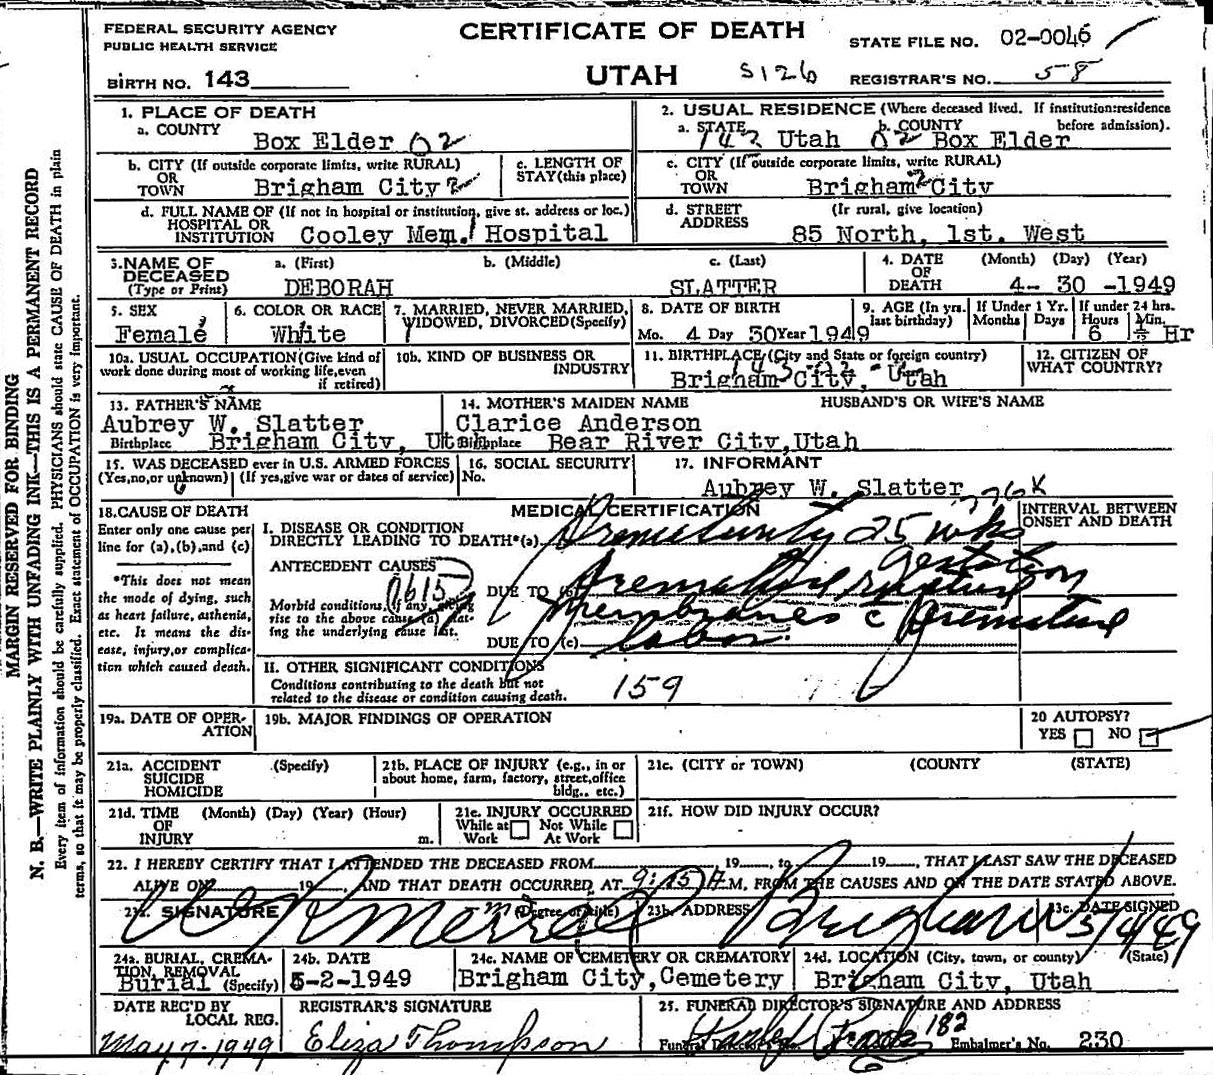 FEDERAL SECURITY AGENCY
PUBLIC HEALTH SERVICE
BIRTH NO. 143
CERTIFICATE OF DEATH
UTAH S126
STATE FILE NO. 02-0046
REGISTRAR'S NO. 58
MARGIN RESERVED FOR BINDING
N. B.—WRITE PLAINLY WITH UNFADING INK—THIS IS A PERMANENT RECORD
Every item of information should be carefully supplied. PHYSICIANS should state CAUSE OF DEATH in plain
terms, so that it may be properly classified. Exact statement of OCCUPATION is very important.
1. PLACE OF DEATH
a. COUNTY
Box Elder 02
2. USUAL RESIDENCE (Where deceased lived. If institution:residence
before admission).
a. STATE 142 Utah
b. COUNTY 02 Box Elder
b. CITY (If outside corporate limits, write RURAL)
OR
TOWN Brigham City 2
c. LENGTH OF
STAY(this place)
c. CITY (If outside corporate limits, write RURAL)
OR
TOWN Brigham 2 City
d. FULL NAME OF (If not in hospital or institution, give st. address or loc.)
HOSPITAL OR
INSTITUTION Cooley Mem. Hospital
d. STREET
ADDRESS (Ir rural, give location)
85 North, 1st. West
3.NAME OF
DECEASED
(Type or Print)
a. (First)
DEBORAH
b. (Middle)
c. (Last)
SLATTER
4. DATE
OF
DEATH
(Month) (Day) (Year)
4- 30 -1949
5. SEX
Female
6. COLOR OR RACE
White
7. MARRIED, NEVER MARRIED,
WIDOWED, DIVORCED(Specify)
8. DATE OF BIRTH
Mo. 4 Day 30 Year 1949
9. AGE (In yrs.
last birthday)
If Under 1 Yr.
Months Days
If under 24 hrs.
Hours Min.
6 ½ Hr
10a. USUAL OCCUPATION(Give kind of
work done during most of working life,even
if retired)
10b. KIND OF BUSINESS OR
INDUSTRY
11. BIRTHPLACE (City and State or foreign country)
Brigham City, Utah
12. CITIZEN OF
WHAT COUNTRY?
13. FATHER'S NAME
Aubrey W. Slatter
Birthplace Brigham City, Ut
14. MOTHER'S MAIDEN NAME
Clarice Anderson
Birthplace Bear River City,Utah
HUSBAND'S OR WIFE'S NAME
15. WAS DECEASED ever in U.S. ARMED FORCES
(Yes,no,or unknown) (If yes,give war or dates of service)
16. SOCIAL SECURITY
No.
17. INFORMANT
Aubrey W. Slatter
18.CAUSE OF DEATH
Enter only one cause per
line for (a),(b),and (c)
*This does not mean
the mode of dying, such
as heart failure, asthenia,
etc. It means the dis-
ease, injury,or complica-
tion which caused death.
MEDICAL CERTIFICATION
INTERVAL BETWEEN
ONSET AND DEATH
I. DISEASE OR CONDITION
DIRECTLY LEADING TO DEATH*(a) Prematurity 25 wks
gestation
ANTECEDENT CAUSES
Morbid conditions, if any, giving
rise to the above cause (a) stat-
ing the underlying cause last.
DUE TO (b) Premature rupture
membranes c Premature
DUE TO (c) labor.
II. OTHER SIGNIFICANT CONDITIONS
Conditions contributing to the death but not
related to the disease or condition causing death.
159
19a. DATE OF OPER-
ATION
19b. MAJOR FINDINGS OF OPERATION
20 AUTOPSY?
YES NO
21a. ACCIDENT (Specify)
SUICIDE
HOMICIDE
21b. PLACE OF INJURY (e.g., in or
about home, farm, factory, street,office
bldg., etc.)
21c. (CITY or TOWN) (COUNTY (STATE)
21d. TIME (Month) (Day) (Year) (Hour)
OF
INJURY m.
21e. INJURY OCCURRED
While at Not While
Work At Work
21f. HOW DID INJURY OCCUR?
22. I HEREBY CERTIFY THAT I ATTENDED THE DECEASED FROM 19 , to 19 , THAT I LAST SAW THE DECEASED
ALIVE ON 19 , AND THAT DEATH OCCURRED AT 9:15 A M, FROM THE CAUSES AND ON THE DATE STATED ABOVE.
23a. SIGNATURE (Degree or title)
Merrell
23b. ADDRESS
Brigham
23c. DATE SIGNED
5/4/49
24a. BURIAL, CREMA-
TION, REMOVAL
Burial (Specify)
24b. DATE
5-2-1949
24c. NAME OF CEMETERY OR CREMATORY
Brigham City,Cemetery
24d. LOCATION (City, town, or county) (State)
Brigham City, Utah
DATE REC'D BY
LOCAL REG.
May 7-1949
REGISTRAR'S SIGNATURE
Eliza Thompson
25. FUNERAL DIRECTOR'S SIGNATURE AND ADDRESS
182
Funeral Director's No. Embalmer's No. 230